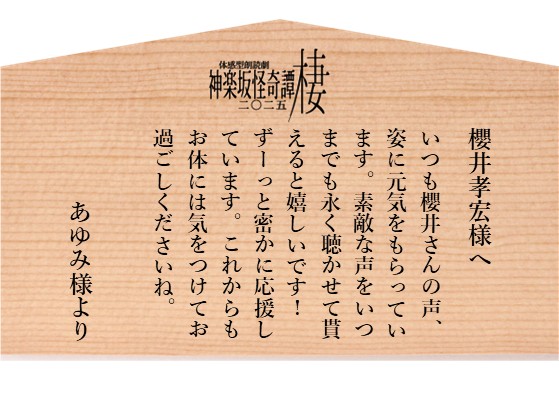 体感型朗読劇
神楽坂怪奇譚
棲
二〇二五
櫻井孝宏様へ
いつも櫻井さんの声、
姿に元気をもらってい
ます。素敵な声をいつ
までも永く聴かせて貰
えると嬉しいです！
ずーっと密かに応援し
ています。これからも
お体には気をつけてお
過ごしくださいね。
あゆみ様より